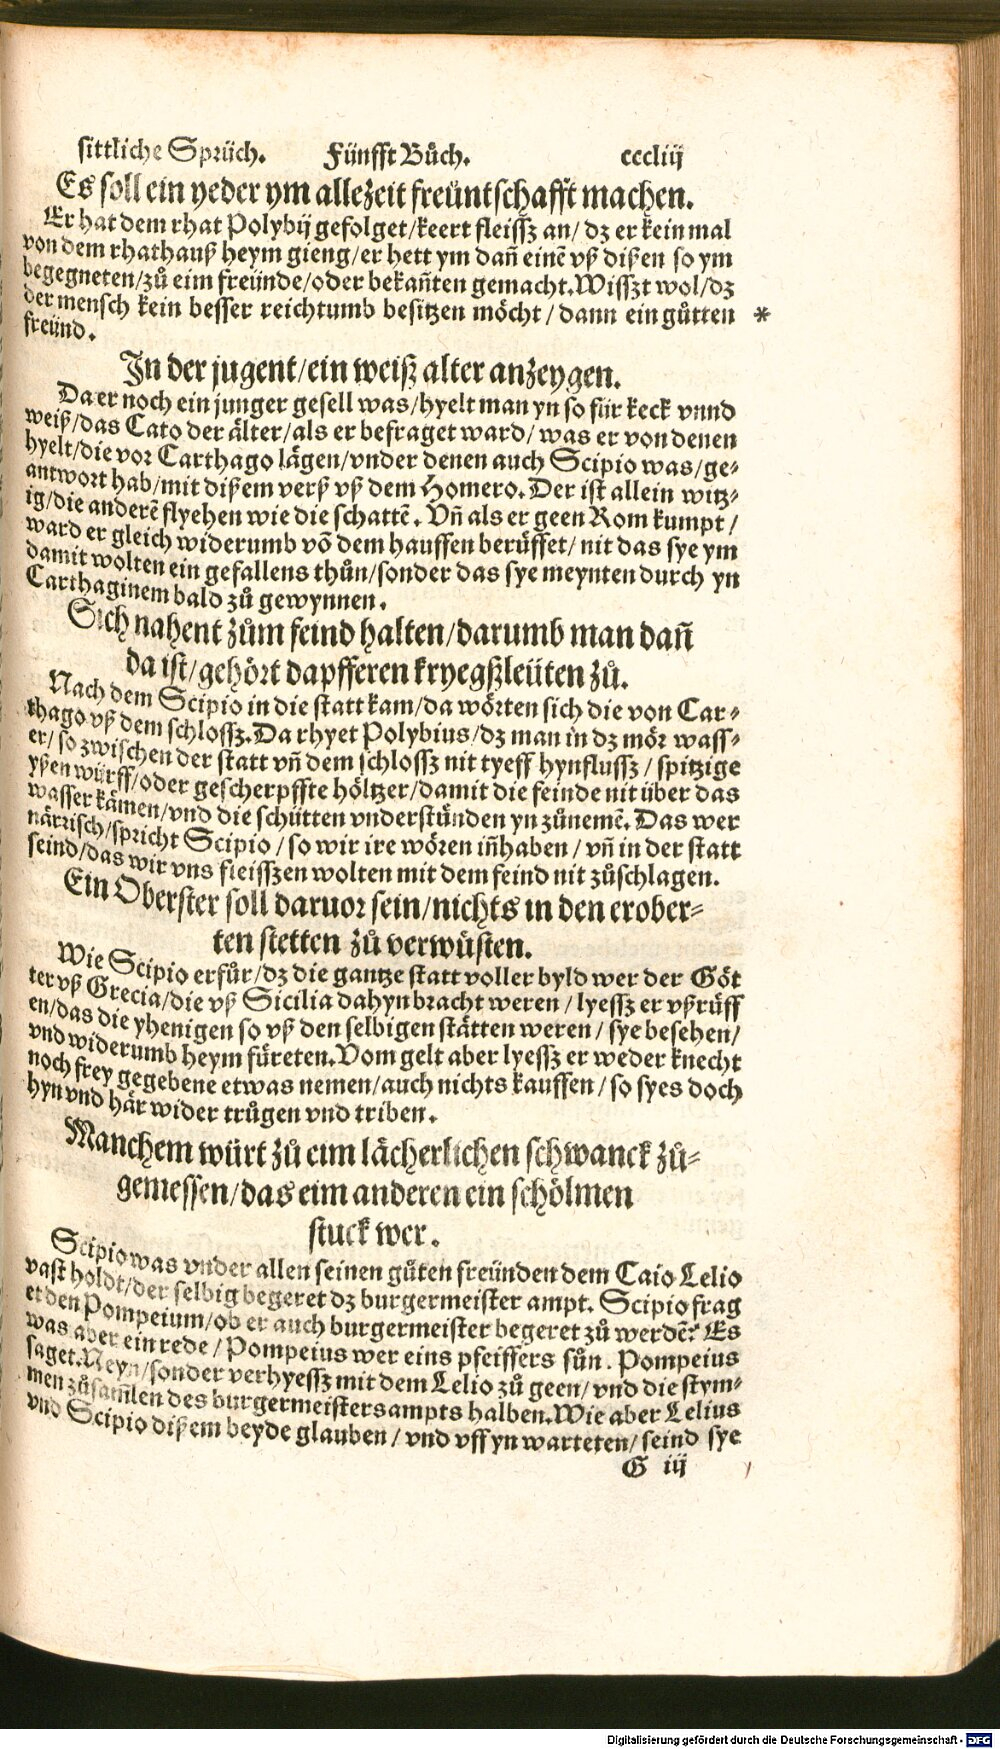 sittliche Sprüch. Fünfft Bůch. cccliij
Es soll ein yeder ym allezeit freüntschafft machen.
Er hat dem rhat Polybij gefolget/keert fleissz an/ dz er kein mal
von dem rhathauß heym gieng/er hett ym dañ einẽ vß dißen so ym
begegneten/zů eim freünde/oder bekañten gemacht.Wisszt wol/dz
der mensch kein besser reichtumb besitzen möcht/ dann ein gůtten *
freünd.
In der jugent/ein weiß alter anzeygen.
Da er noch ein junger gesell was/hyelt man yn so für keck vnnd
weiß/das Cato der älter/als er befraget ward/ was er von denen
hyelt/die vor Carthago lägen/vnder denen auch Scipio was/ge⸗
antwort hab/mit dißem verß vß dem Homero.Der ist allein witz⸗
ig/die anderẽ flyehen wie die schattẽ. Vñ als er geen Rom kumpt/
ward er gleich widerumb võ dem hauffen berůffet/ nit das sye ym
damit wolten ein gefallens thůn/sonder das sye meynten durch yn
Carthaginem bald zů gewynnen.
Sich nahent zům feind halten/darumb man dañ
da ist/gehört dapfferen kryegßleüten zů.
Nach dem Scipio in die statt kam/da wörten sich die von Car⸗
thago vß dem schlossz.Da rhyet Polybius/dz man in dz mör wass⸗
er/ so zwischen der statt vñ dem schlossz nit tyeff hynflussz/ spitzige
yßen würff/oder gescherpffte höltzer/damit die feinde nit über das
wasser kämen/vnd die schütten vnderstünden yn zůnemẽ. Das wer
närrisch/spricht Scipio/ so wir ire wören iñhaben/ vñ in der statt
seind/das wir vns fleisszen wolten mit dem feind nit zůschlagen.
Ein Oberster soll daruor sein/nichts in den erober⸗
ten stetten zů verwüsten.
Wie Scipio erfůr/dz die gantze statt voller byld wer der Göt
ter vß Grecia/die vß Sicilia dahyn bracht weren/ lyessz er vßrüff
en/das die yhenigen so vß den selbigen stätten weren/ sye besehen/
vnd widerumb heym füreten.Vom gelt aber lyessz er weder knecht
noch frey gegebene etwas nemen/auch nichts kauffen/ so syes doch
hyn vnd här wider trůgen vnd triben.
Manchem würt zů eim lächerlichen schwanck zů⸗
gemessen/das eim anderen ein schölmen
stuck wer.
Scipio was vnder allen seinen gůten freünden dem Caio Lelio
vast holdt/der selbig begeret dz burgermeister ampt. Scipio frag
et den Pompeium/ob er auch burgermeister begeret zů werdẽ? Es
was aber ein rede/ Pompeius wer eins pfeiffers sůn. Pompeius
saget.Neyn/sonder verhyessz mit dem Lelio zů geen/ vnd die stym⸗
men zůsam̃len des burgermeistersampts halben.Wie aber Lelius
vnd Scipio dißem beyde glauben/ vnd vff yn warteten/ seind sye
G iij
Digitalisierung gefördert durch die Deutsche Forschungsgemeinschaft - DFG